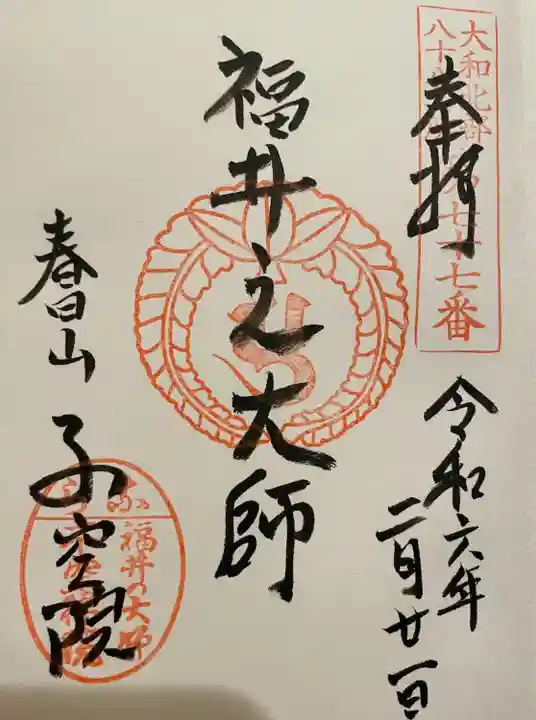 大和北部
八十八
第七十七番
奉拝
令和六年
二月廿一日
福井之大師
春日山
不空院
福井の大師